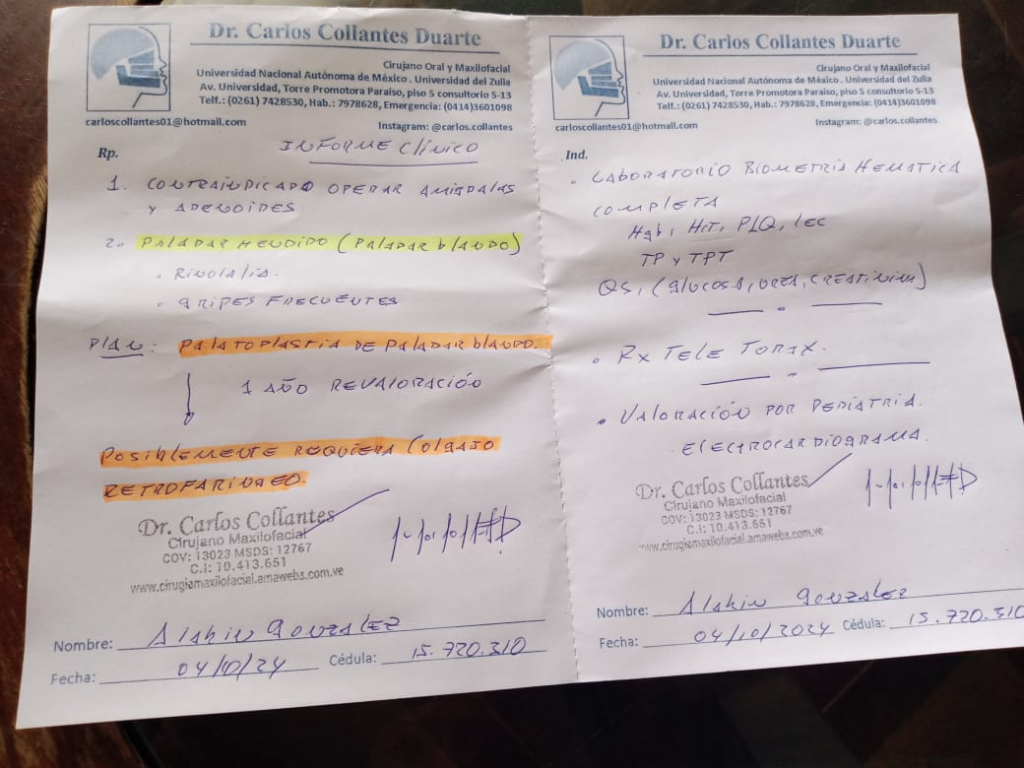 Dr. Carlos Collantes Duarte
Cirujano Oral y Maxilofacial
Universidad Nacional Autónoma de México . Universidad del Zulia
Av. Universidad, Torre Promotora Paraiso, piso 5 consultorio 5-13
Telf.: (0261) 7428530, Hab.: 7978628, Emergencia: (0414)3601098
carloscollantes01@hotmail.com Instagram: @carlos.collantes
Rp. INFORME CLÍNICO
1. CONTRAINDICADO OPERAR AMIGDALAS
Y ADENOIDES
2. PALADAR HENDIDO (PALADAR blANDO)
• RINOLALIA.
• GRIPES FRECUENTES
PLAN: PALATOPLASTIA DE PALADAR blANDO.
1 AÑO REVALORACIÓN
POSIBLEMENTE REQUIERA COLGAJO
RETROFARINGEO.
Dr. Carlos Collantes
Cirujano Maxilofacial
COV: 13023 MSDS: 12767
C.I: 10.413.651
www.cirugiamaxilofacial.amawebs.com.ve
Nombre: GONZALEZ
Fecha: 04/10/24 Cédula: 15.720.310
Dr. Carlos Collantes Duarte
Cirujano Oral y Maxilofacial
Universidad Nacional Autónoma de México . Universidad del Zulia
Av. Universidad, Torre Promotora Paraiso, piso 5 consultorio 5-13
Telf.: (0261) 7428530, Hab.: 7978628, Emergencia: (0414)3601098
carloscollantes01@hotmail.com Instagram: @carlos.collantes
Ind.
• LABORATORIO BIOMETRIA HEMATICA
COMPLETA
Hgb, HcT, PlQ, lec
TP y TPT
QS, (glucosa, UREA, CREATININA)
• Rx TELE TORAX.
• VALORACIÓN POR PEDIATRIA.
ELECTROCARDIOGRAMA.
Dr. Carlos Collantes
Cirujano Maxilofacial
COV: 13023 MSDS: 12767
C.I: 10.413.651
www.cirugiamaxilofacial.amawebs.com.ve
Nombre: GONZALEZ
Fecha: 04/10/2024 Cédula: 15.720.310